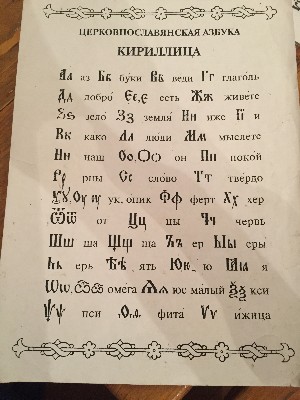 ЦЕРКОВНОСЛАВЯНСКАЯ АЗБУКА
КИРИЛЛИЦА
Аа аз Бб буки Вв веди Гг глаголь
Дд добро Єє,Є есть Жж живете
Ѕѕ зело Зз земля Ии иже Її и
Кк како Лл люди Мм мыслете
Нн наш Оо,Ѻѻ он Пп покой
Рр рцы Сс слово Тт твердо
Ѹѹ,Оу ук, оник Фф ферт Хх хер
Ѿѿ от Цц цы Чч червь
Шш ша Щщ ща Ъъ ер Ыы еры
Ьь ерь Ѣѣ ять Юю ю Ꙗꙗ я
Ѡѡ, омега Ѧѧ юс малый Ѯѯ кси
Ѱѱ пси Ѳѳ фита Ѵѵ ижица